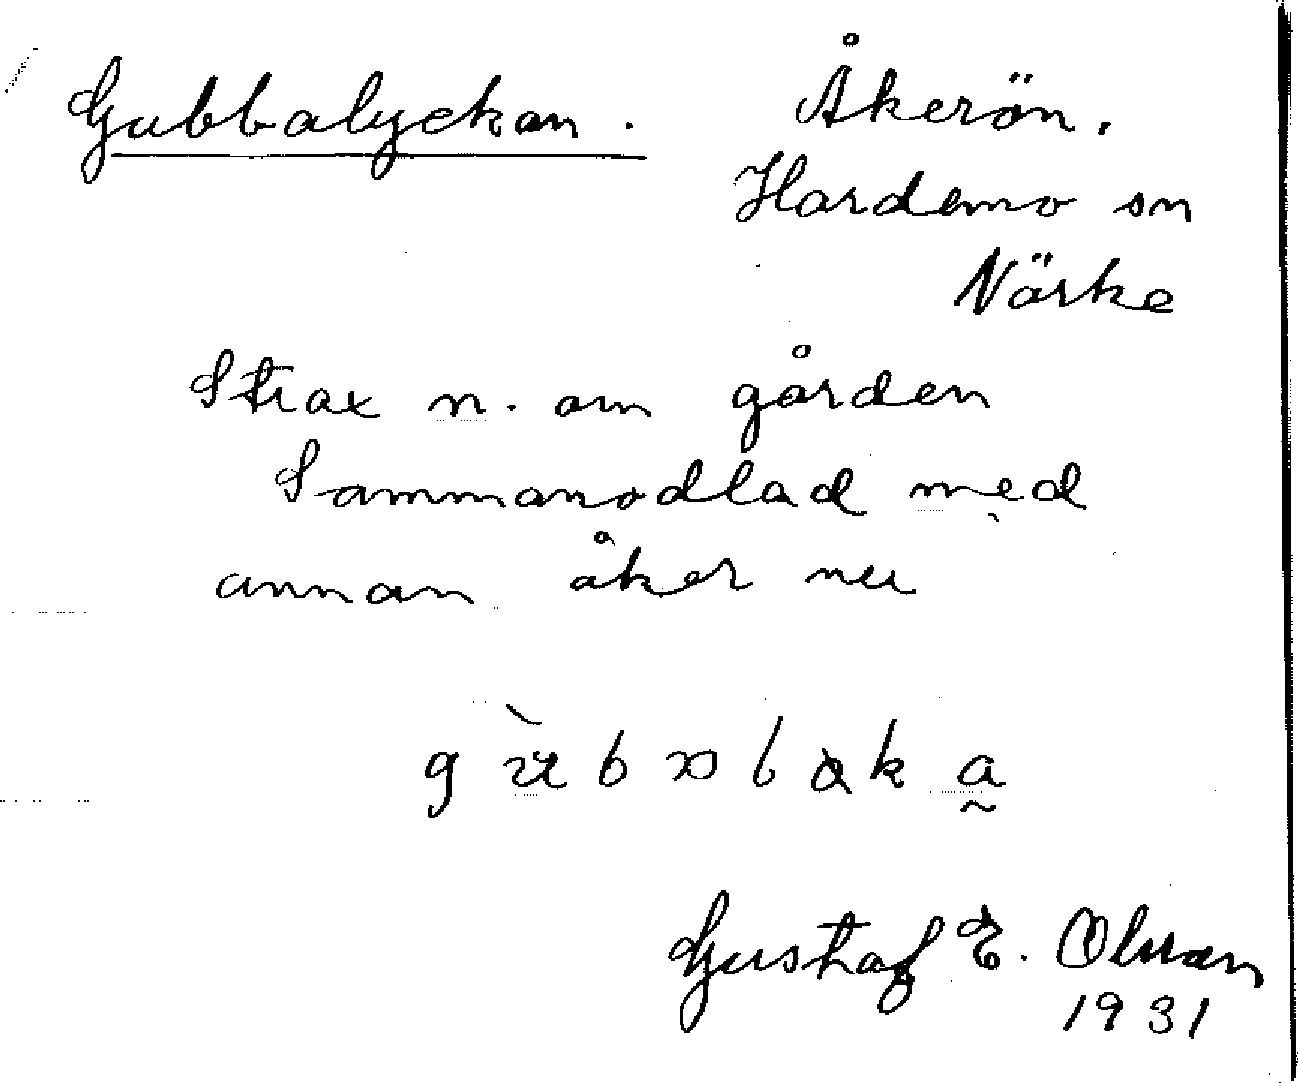 Gubbalyckan. Åkerön.
Hardemo sn
Närke
Strax n. om gården
Sammanodlad med
annan åker nu
Gustaf E. Olsson
1931